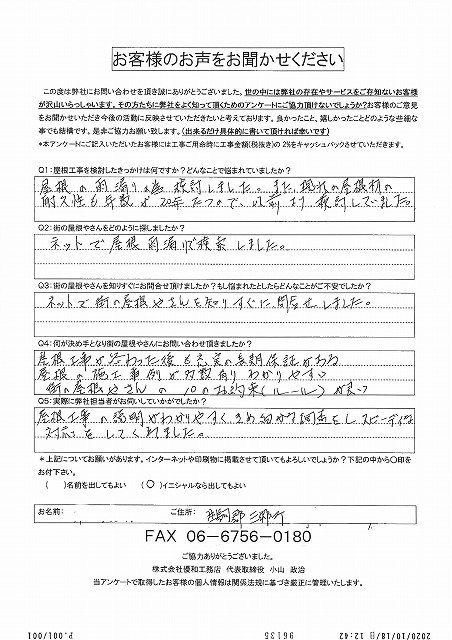 お客様のお声をお聞かせください
この度は弊社にお問い合わせを頂き誠にありがとうございました。世の中には弊社の存在やサービスをご存知ないお客様
が沢山いらっしゃいます。その方たちに弊社をよく知って頂くためのアンケートにご協力頂けないでしょうか？お客様のご意見
をお聞かせいただき今後の活動に反映させていただきたいと考えております。良かったこと、嬉しかったことどのような些細な
事でも結構です。是非ご協力お願い致します。（出来るだけ具体的に書いて頂ければ幸いです）
*本アンケートにご記入いただいたお客様には工事ご用命時に工事金額(税抜き)の 2%をキャッシュバックさせていただきます。
Q1：屋根工事を検討したきっかけは何ですか？どんなことで悩まれていましたか？
屋根の雨漏り 検討しました。また、現在の屋根材の
耐久性も年数が20年たつので、以前より検討していました。
Q2：街の屋根やさんをどのように探しましたか？
ネットで屋根雨漏り検索しました。
Q3：街の屋根やさんを知りすぐにお問合せ頂けましたか？もし悩まれたとしたらどんなことがご不安でしたか？
ネットで街の屋根やさんを知りすぐに、問合せしました。
Q4：何が決め手となり街の屋根やさんにお問い合わせ頂きましたか？
屋根工事が終わった後も充実の長期保証がある
屋根の施工事例が多数有りわかりやすい
街の屋根やさんの10のお約束(ルール)が良い
Q5：実際に弊社担当者がお伺いしていかがでしたか？
屋根工事の説明がわかりやすくきめ細かな調査をしスピーディな
対応をしてくれました。
*上記についてお願いがあります。インターネットや印刷物に掲載させて頂いてもよろしいでしょうか？下記の中から〇印を
お付下さい。
（　）名前を出してもよい　（〇）イニシャルなら出してもよい
お名前：　ご住所：生駒郡三郷町
FAX 06-6756-0180
ご協力ありがとうございました。
株式会社優和工務店　代表取締役　小山　政治
当アンケートで取得したお客様の個人情報は関係法規に基づき厳正に管理いたします。
2020/10/18/日 12:42
96135
P.001/001